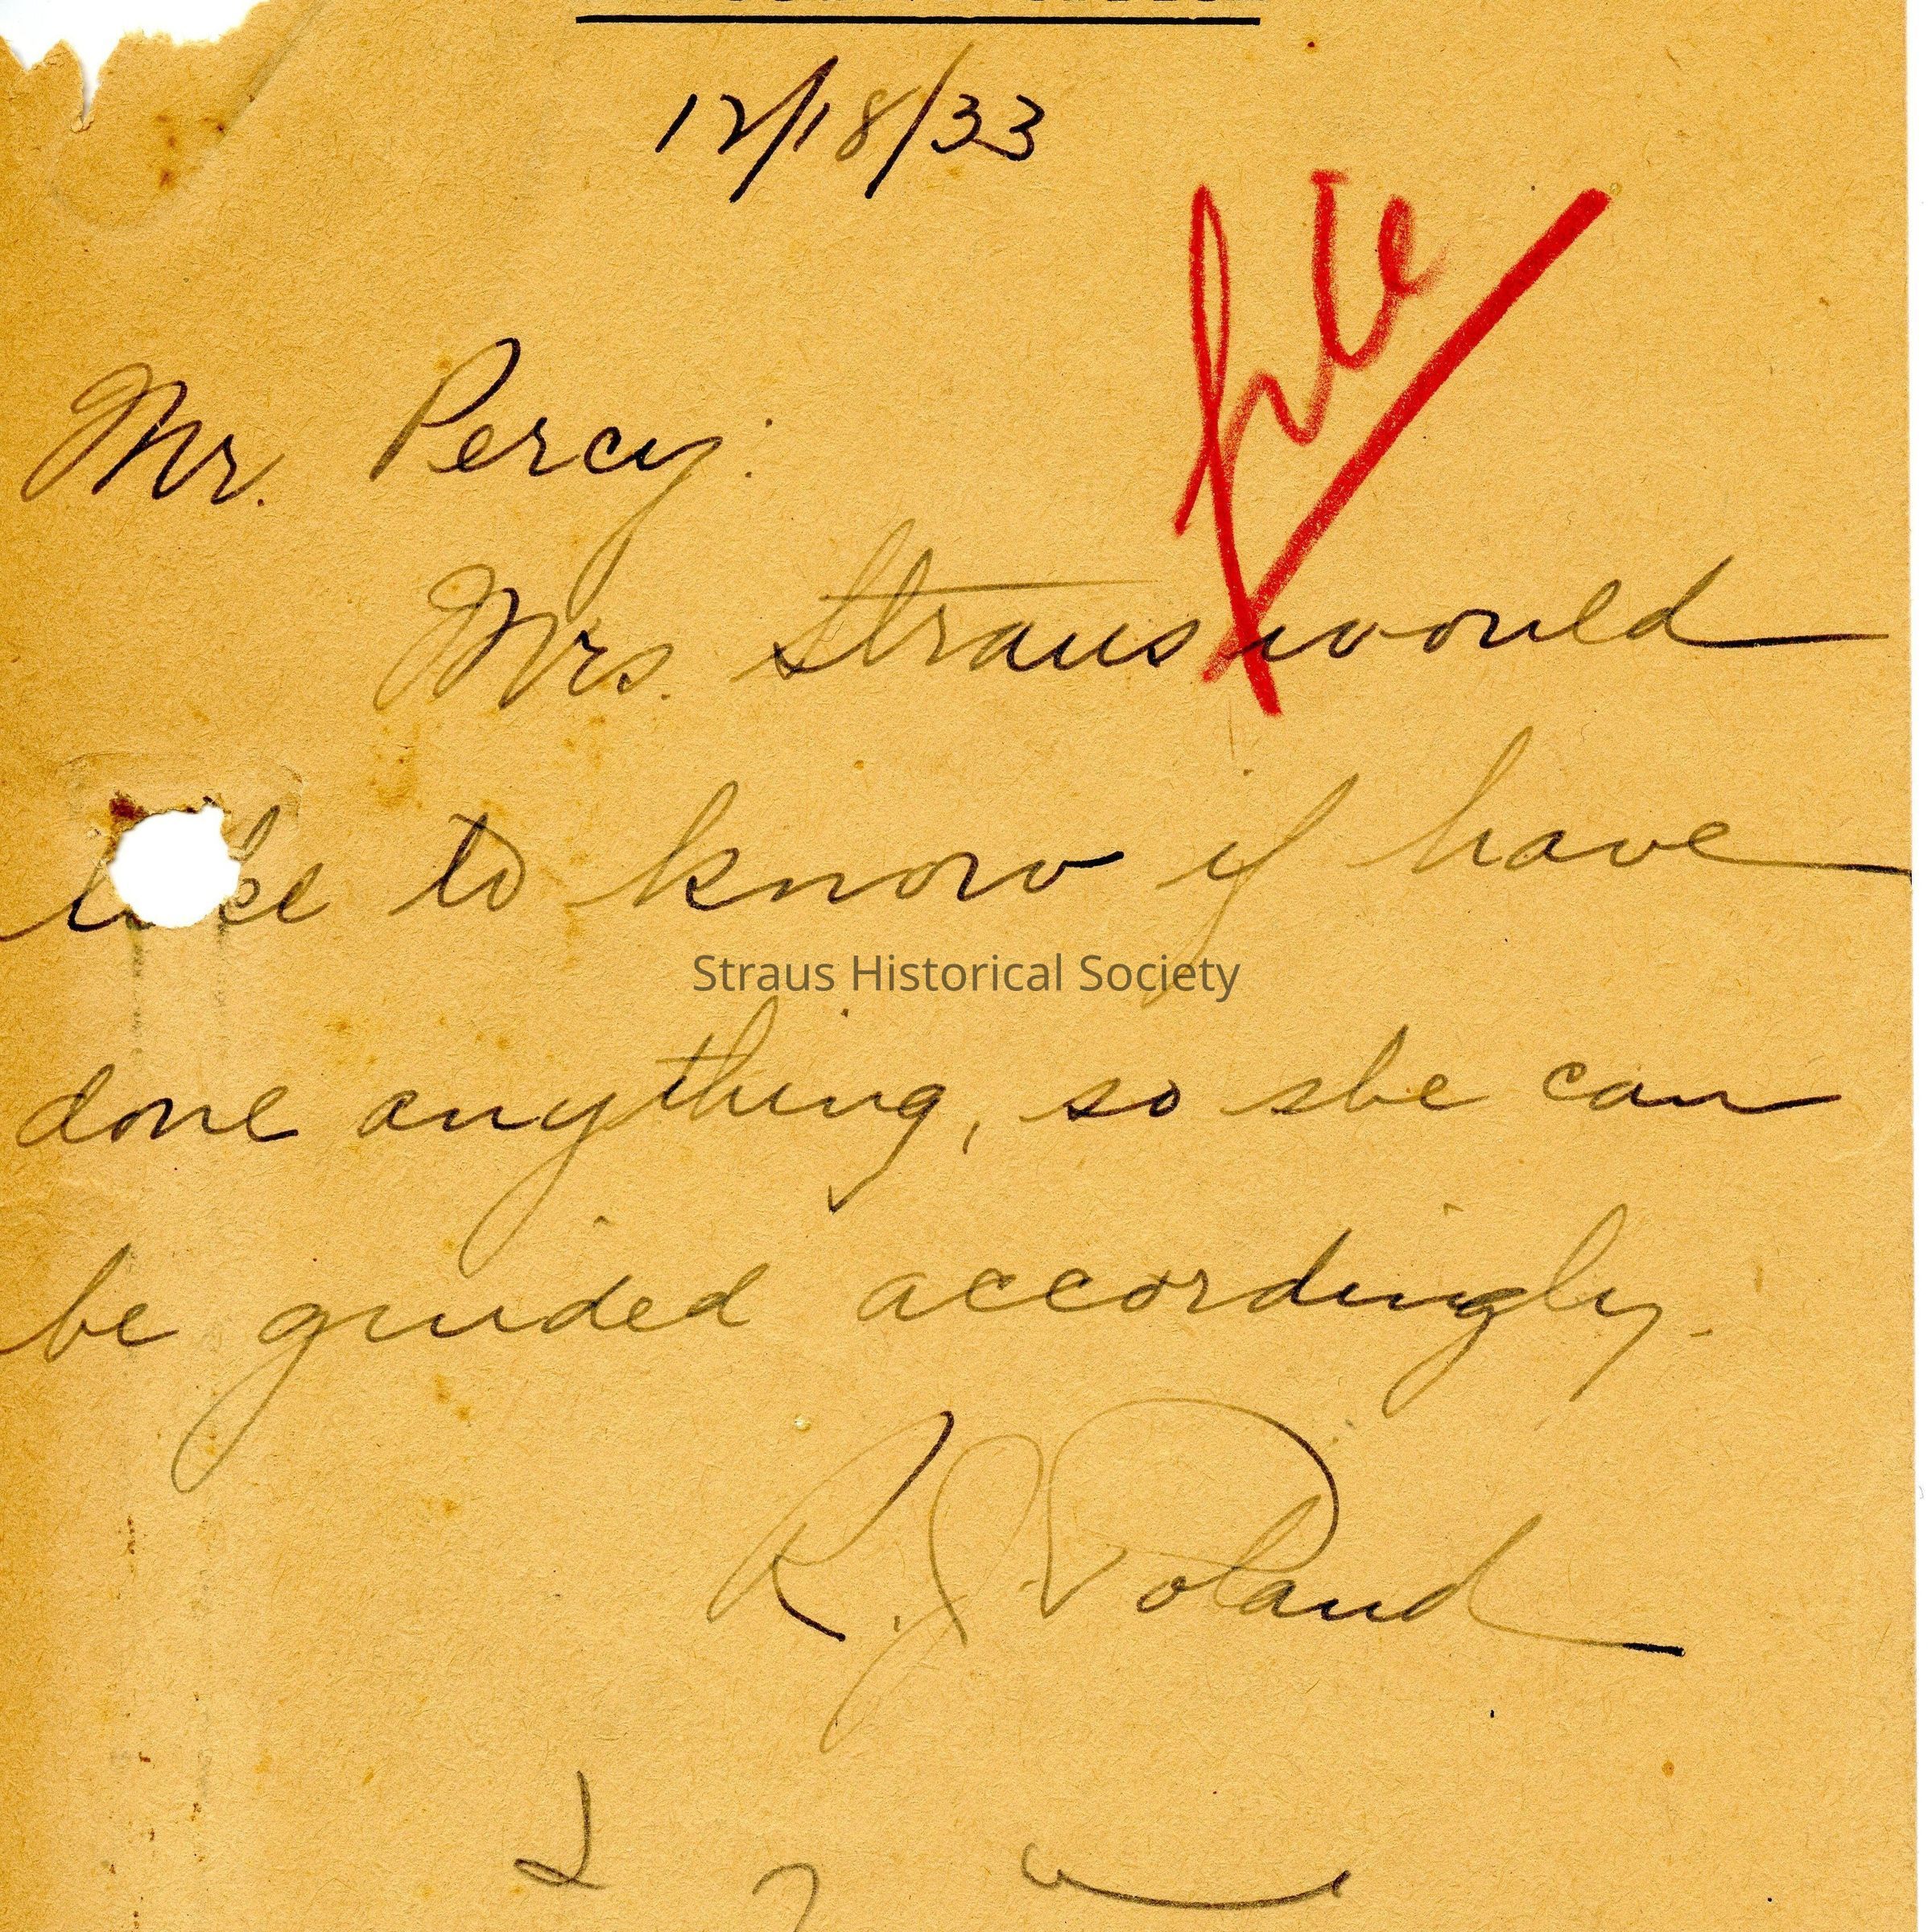 12/18/33
file
Mr. Percy:
Mrs. Straus would
like to know if have
Straus Historical Society
done anything, so she can
be guided accordingly.
R. J. Poland